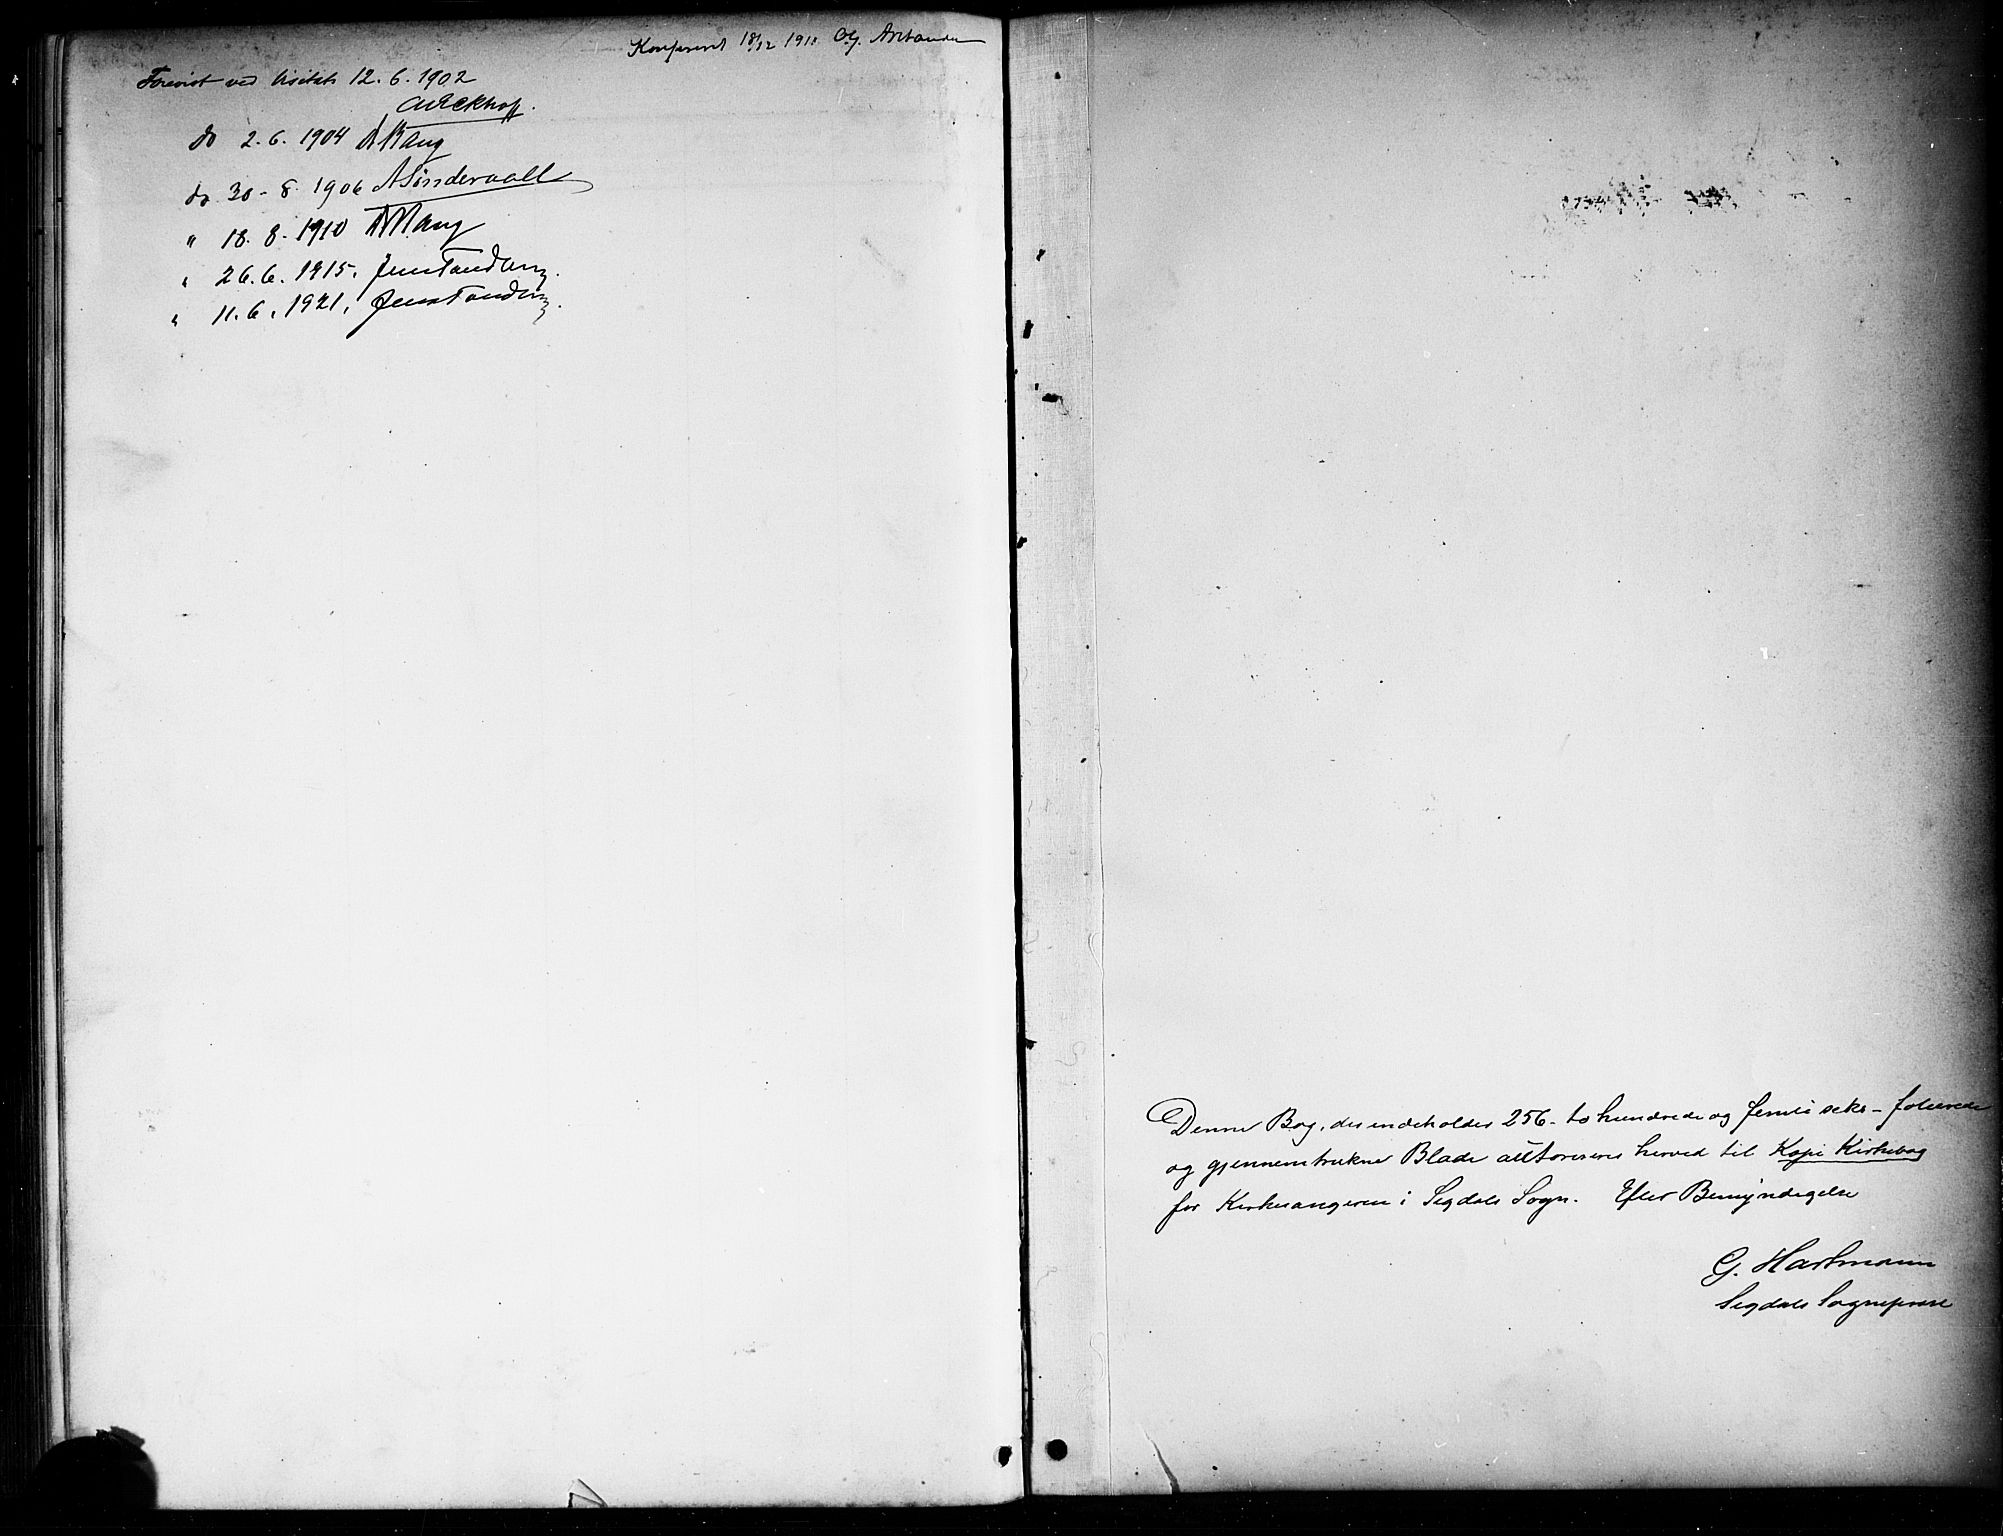 Konfereret 18/12 1911 Og.
Forevist ved Visitats 12. 6. 1902
Eckhoff.
do 2. 6. 1904 A Bang
do 30 - 8. 1906 A Sinderaall
" 18. 8. 1910 A Bang
" 26. 6. 1915. Jens Tandberg.
" 11. 6. 1921. Jens Tandberg.
Denne Bog, der indeholder 256 - to hundrede og femti seks - folierede
og gjennemtrukne Blade auktoriseres herved til Kopi Kirkebog
for Kirkesangeren i Sigdals Sogn. Efter Bemyndigelse
G. Hartmann
Sigdals Sognepræst